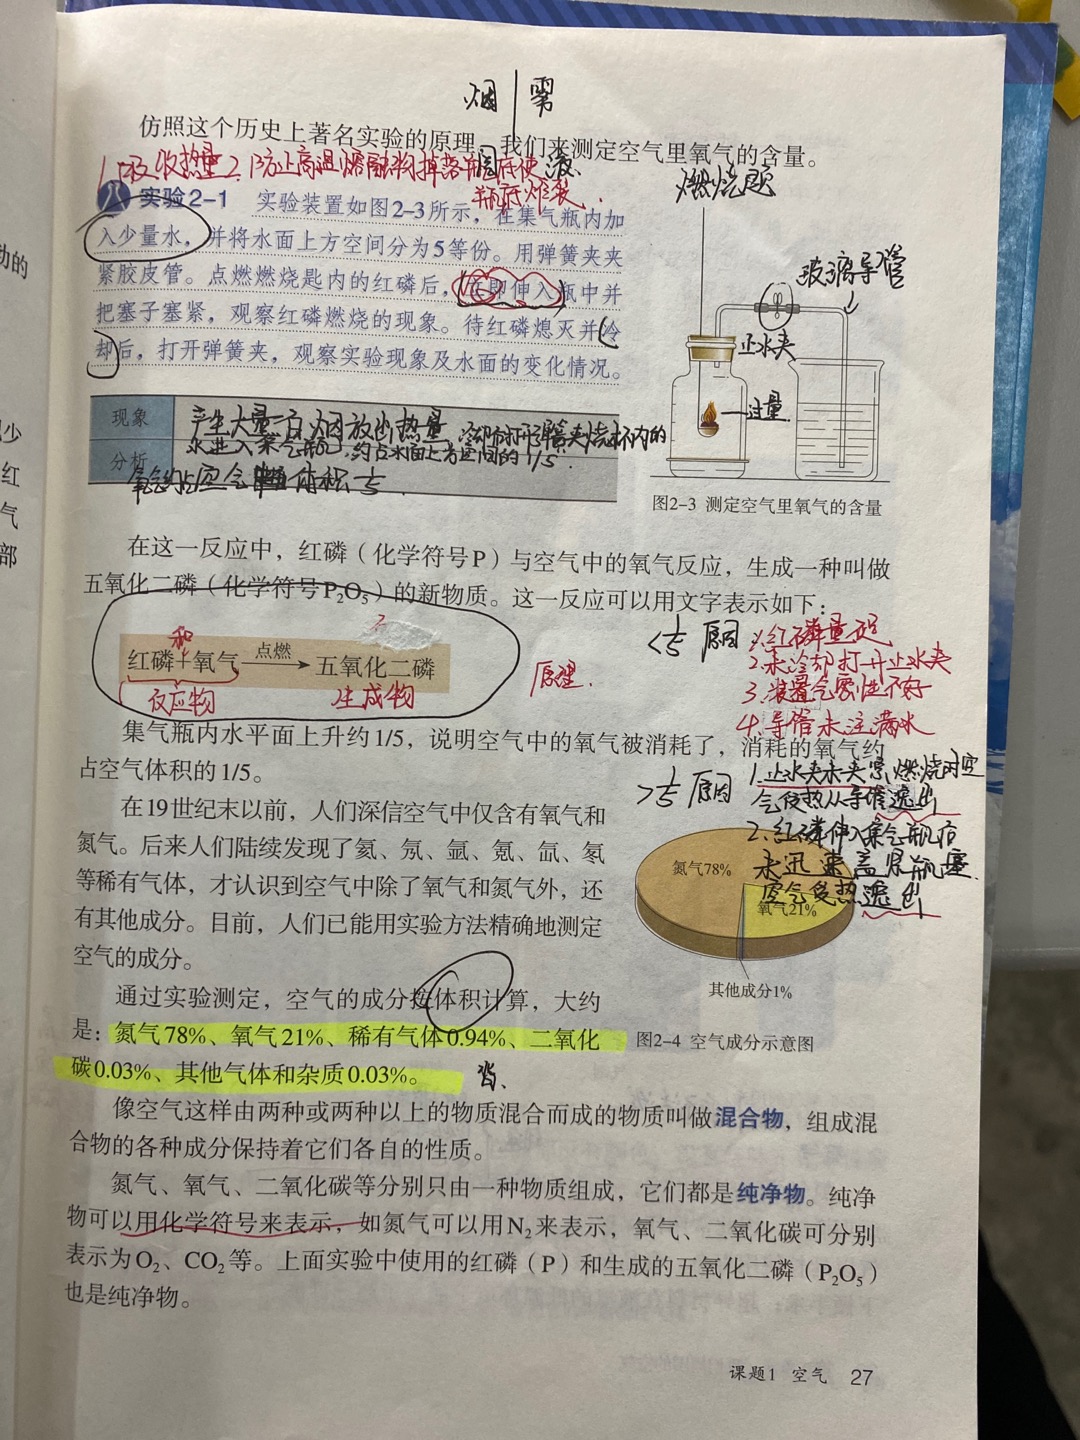 烟 雾
仿照这个历史上著名实验的原理，我们来测定空气里氧气的含量。
1.吸收热量2.防止高温熔融物掉落 底使
瓶底炸裂.
燃烧匙
实验2-1 实验装置如图2-3所示，在集气瓶内加
入少量水，并将水面上方空间分为5等份。用弹簧夹夹
紧胶皮管。点燃燃烧匙内的红磷后，立即伸入瓶中并
把塞子塞紧，观察红磷燃烧的现象。待红磷熄灭并冷
却后，打开弹簧夹，观察实验现象及水面的变化情况。
玻璃导管
止水夹
过量
现象 产生大量白烟放出热量 冷却打开弹簧夹烧杯内的
水进入集气瓶，约占水面上方空间的1/5.
分析 氧气约占空气 体积
图2-3 测定空气里氧气的含量
在这一反应中，红磷（化学符号P）与空气中的氧气反应，生成一种叫做
五氧化二磷（化学符号P₂O₅）的新物质。这一反应可以用文字表示如下：
和
红磷+氧气 点燃 五氧化二磷
反应物 生成物
原理.
<1/5 原因 1.红磷量不足
2.未冷却打开止水夹
3.装置气密性不好
4.导管未注满水
集气瓶内水平面上升约1/5，说明空气中的氧气被消耗了，消耗的氧气约
占空气体积的1/5。
>1/5 原因 1.止水夹未夹紧,燃烧时空
气受热从导管逸出
2.红磷伸入集气瓶后
未迅速盖紧瓶塞.
空气受热逸出
在19世纪末以前，人们深信空气中仅含有氧气和
氮气。后来人们陆续发现了氦、氖、氩、氪、氙、氡
等稀有气体，才认识到空气中除了氧气和氮气外，还
有其他成分。目前，人们已能用实验方法精确地测定
空气的成分。
氮气78%
氧气21%
其他成分1%
图2-4 空气成分示意图
通过实验测定，空气的成分按体积计算，大约
是：氮气78%、氧气21%、稀有气体0.94%、二氧化
碳0.03%、其他气体和杂质0.03%。
像空气这样由两种或两种以上的物质混合而成的物质叫做混合物，组成混
合物的各种成分保持着它们各自的性质。
氮气、氧气、二氧化碳等分别只由一种物质组成，它们都是纯净物。纯净
物可以用化学符号来表示，如氮气可以用N₂来表示，氧气、二氧化碳可分别
表示为O₂、CO₂等。上面实验中使用的红磷（P）和生成的五氧化二磷（P₂O₅）
也是纯净物。
课题1 空气 27